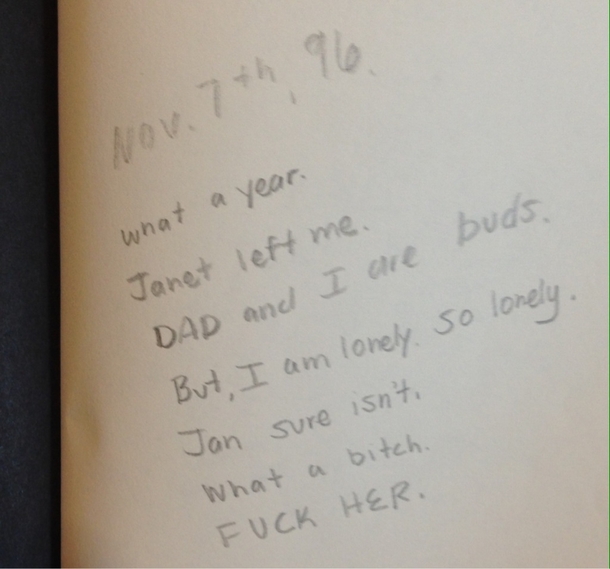 Nov. 7th, 96.
what a year.
Janet left me.
DAD and I are buds.
But, I am lonely. So lonely.
Jan sure isn't.
What a bitch.
FUCK HER.